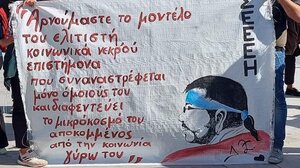 "Αρνούμαστε το μοντέλο
του ελιτιστή
κοινωνικά νεκρού
επιστήμονα
που συναναστρέφεται
μόνο όμοιούς του
και διαφεντεύει
το μικρόκοσμό του
αποκομμένος
από την κοινωνία
γύρω του"